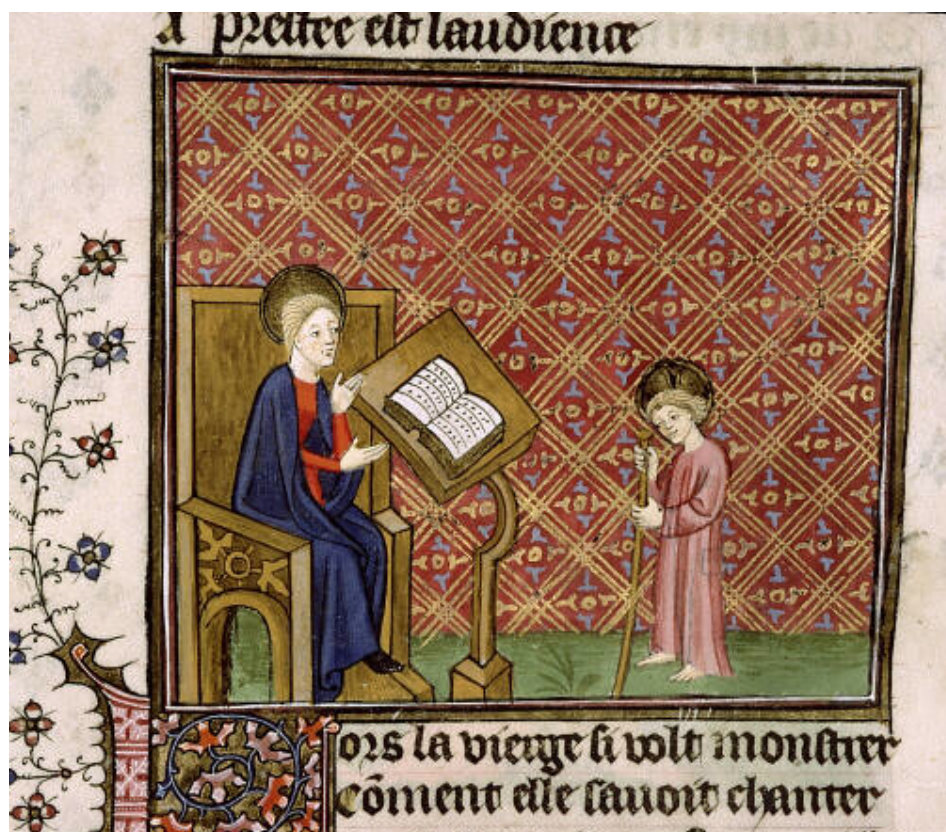 A prestee est laudience
ors la vierge si volt monstrer
cōment elle savoit chanter